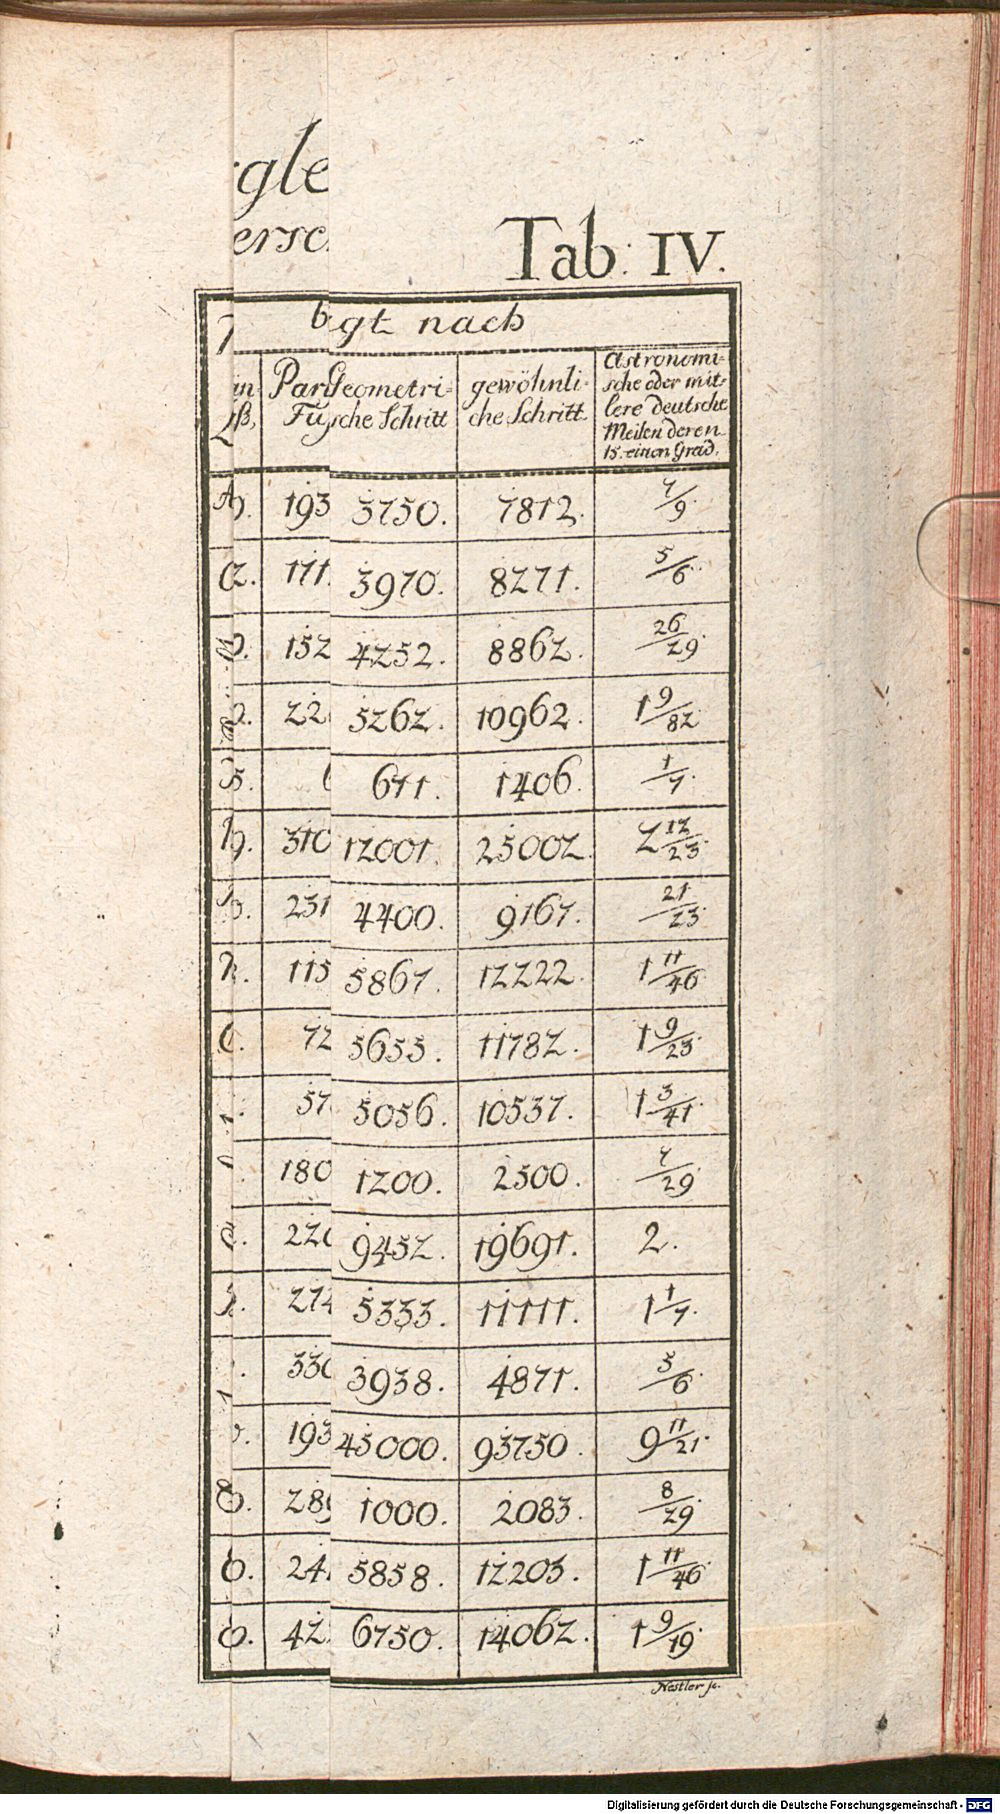 Tab: IV.
gt nach
Geometri-
sche Schritt
gewöhnli-
che Schritt
Astronomi-
sche oder mit-
lere deutsche
Meilen deren
15. einen Grad.
193 3750. 7812. 7/9.
171 3970. 8271. 5/6.
152 4252. 8862. 26/29.
5262. 10962. 1 9/82
671. 1406. 1/7.
310 12001. 25002. 2 12/23.
231 4400. 9167. 21/23.
115 5867. 12222. 1 11/46.
72 5655. 11782. 1 9/23.
57 5056. 10537. 1 3/41.
180 1200. 2500. 7/29.
9452. 19691. 2.
5333. 11111. 1 1/7.
3938. 4871. 5/6.
193 45000. 93750. 9 11/21.
1000. 2083. 8/29.
24 5858. 12203. 1 11/46.
42 6750. 14062. 1 9/19.
Nestler sc.
Digitalisierung gefördert durch die Deutsche Forschungsgemeinschaft - DFG